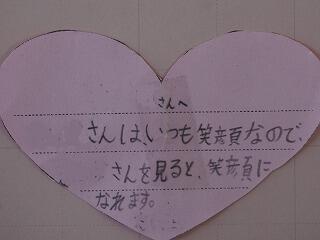 さんへ
さんは、いつも笑顔なので、
さんを見ると、笑顔に
なれます。